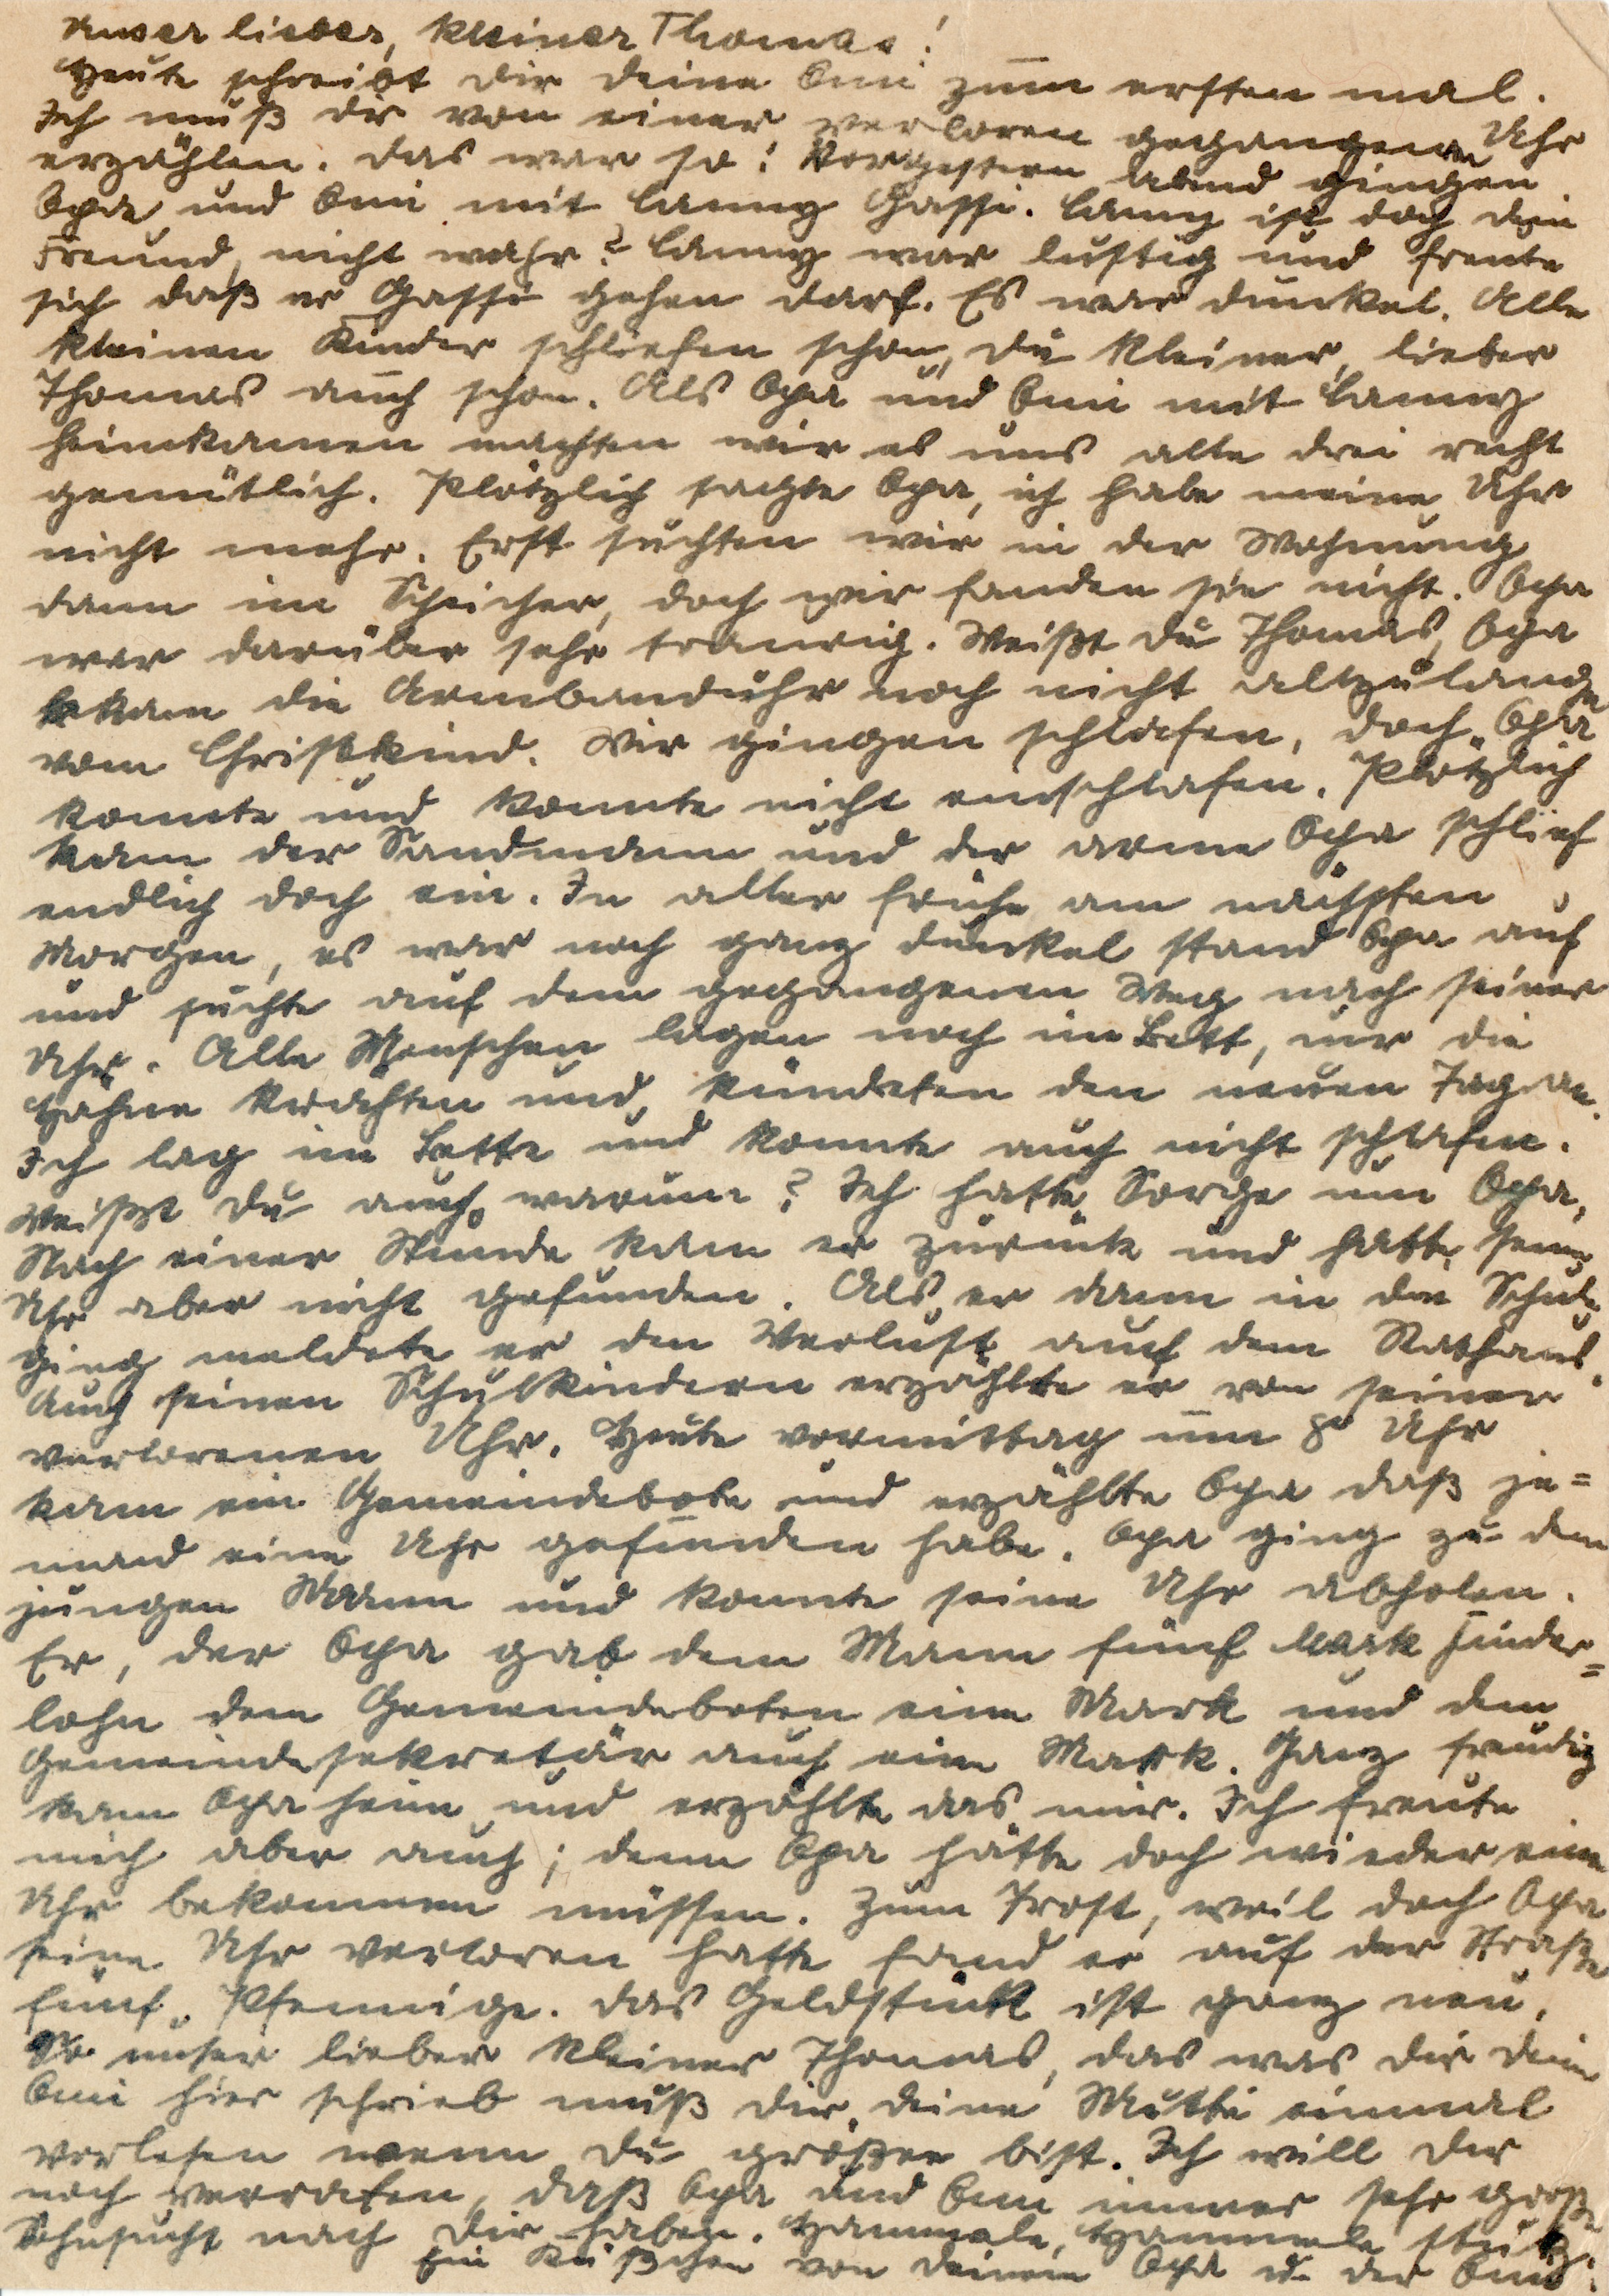 Unser lieber, kleiner Thomas!
Heute schreibt dir deine Omi zum ersten mal.
Ich muß dir von einer verloren gegangenen Uhr
erzählen. Das war so: Vorgestern abend gingen
Opa und Omi mit Lanny Gassi. Lanny ist doch dein
Freund, nicht wahr? Lanny war lustig und freute
sich daß er Gassi gehen darf. Es war dunkel. Alle
kleinen Kinder schliefen schon, du kleiner, lieber
Thomas auch schon. Als Opa und Omi mit Lanny
heimkamen machten wir es uns alle drei recht
gemütlich. Plötzlich sagte Opa, ich habe meine Uhr
nicht mehr. Erst suchten wir in der Wohnung
dann im Speicher, doch wir fanden sie nicht. Opa
war darüber sehr traurig. Weißt du Thomas, Opa
bekam die Armbanduhr noch nicht allzulange
vom Christkind. Wir gingen schlafen, doch Opa
konnte und konnte nicht einschlafen. Plötzlich
kam der Sandmann und der arme Opa schlief
endlich doch ein. In aller frühe am nächsten
Morgen, es war noch ganz dunkel stand Opa auf
und suchte auf dem gegangenen Weg nach seiner
Uhr. Alle Menschen lagen noch im Bett, nur die
Hähne krähten und kündeten den neuen Tag an.
Ich lag im Bette und konnte auch nicht schlafen.
Weißt du auch warum? Ich hatte Sorge um Opa.
Nach einer Stunde kam er zurück und hatte seine
Uhr aber nicht gefunden. Als er dann in die Schule
ging meldete er den Verlust auf dem Rathaus.
Auch seinen Schulkindern erzählte er von seiner
verlorenen Uhr. Heute vormittag um 8 Uhr
kam ein Gemeindebote und erzählte Opa daß je=
mand eine Uhr gefunden habe. Opa ging zu dem
jungen Mann und konnte seine Uhr abholen.
Er, der Opa gab dem Mann fünf Mark Finder=
lohn dem Gemeindeboten eine Mark und dem
Gemeindesekretär auch eine Mark. Ganz freudig
kam Opa heim und erzählte das mir. Ich freute
mich aber auch; denn Opa hätte doch wieder eine
Uhr bekommen müssen. Zum Trost, weil doch Opa
seine Uhr verloren hatte fand er auf der Straße
fünf Pfennige. Das Geldstück ist ganz neu.
So unser lieber kleiner Thomas, das was dir deine
Omi hier schrieb muß dir deine Mutti einmal
vorlesen wenn du größer bist. Ich will dir
noch verraten, daß Opa und Omi immer sehr große
Sehnsucht nach dir haben. Hammele, Hammele stutz.
Ein Küßchen von deinem Opa u. der Omi.